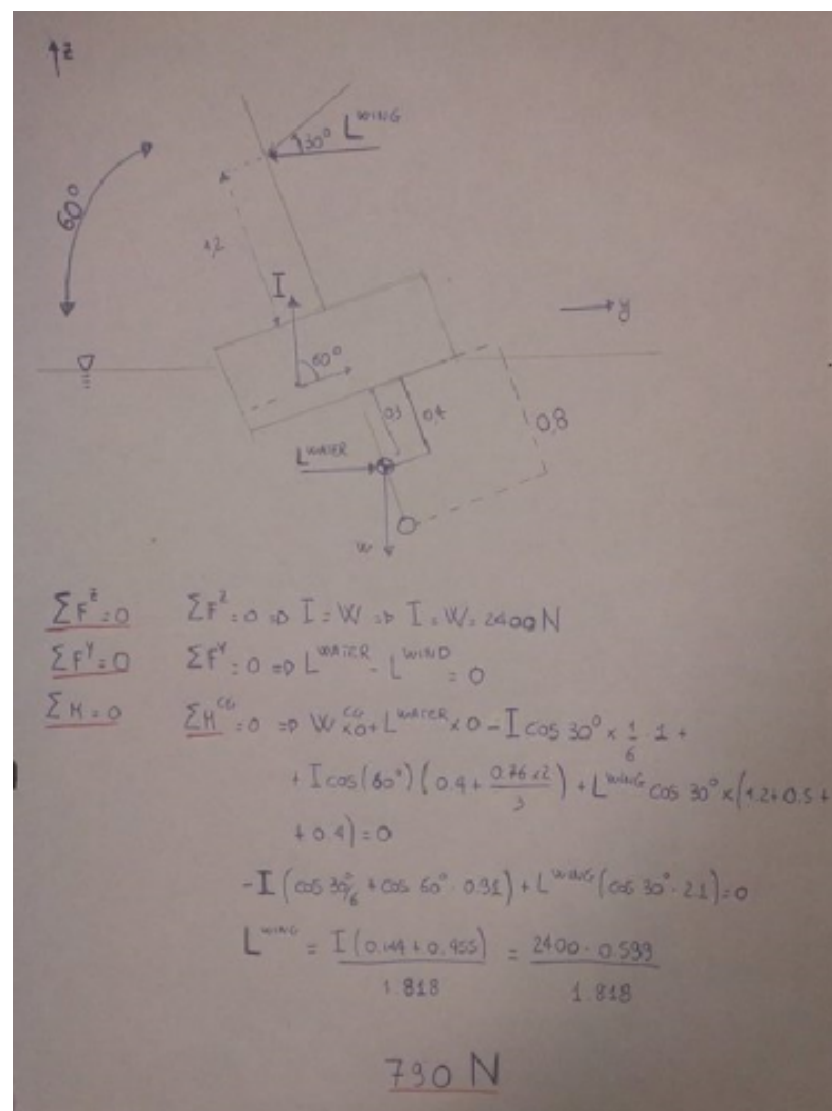 ↑z
L^WING
30°
60°
1,2
I
→ y
60°
0,4
0,8
L^WATER
W
ΣF^z=0 ΣF^z=0 ⇒ I=W ⇒ I=W=2400N
ΣF^Y=0 ΣF^Y=0 ⇒ L^WATER - L^WIND = 0
ΣM=0 ΣM^CG=0 ⇒ W^CG×0+L^WATER×0 - I cos 30° × 1/6 · 1 +
+ I cos(60°)(0.4+ 0.76×2/3) + L^WING cos 30°×(1.2+0.5+
+0.4)=0
-I(cos 30°/6 + cos 60° · 0.91) + L^WING(cos 30° · 2.1)=0
L^WING = I(0.144+0.455)/1.818 = 2400·0.599/1.818
790 N